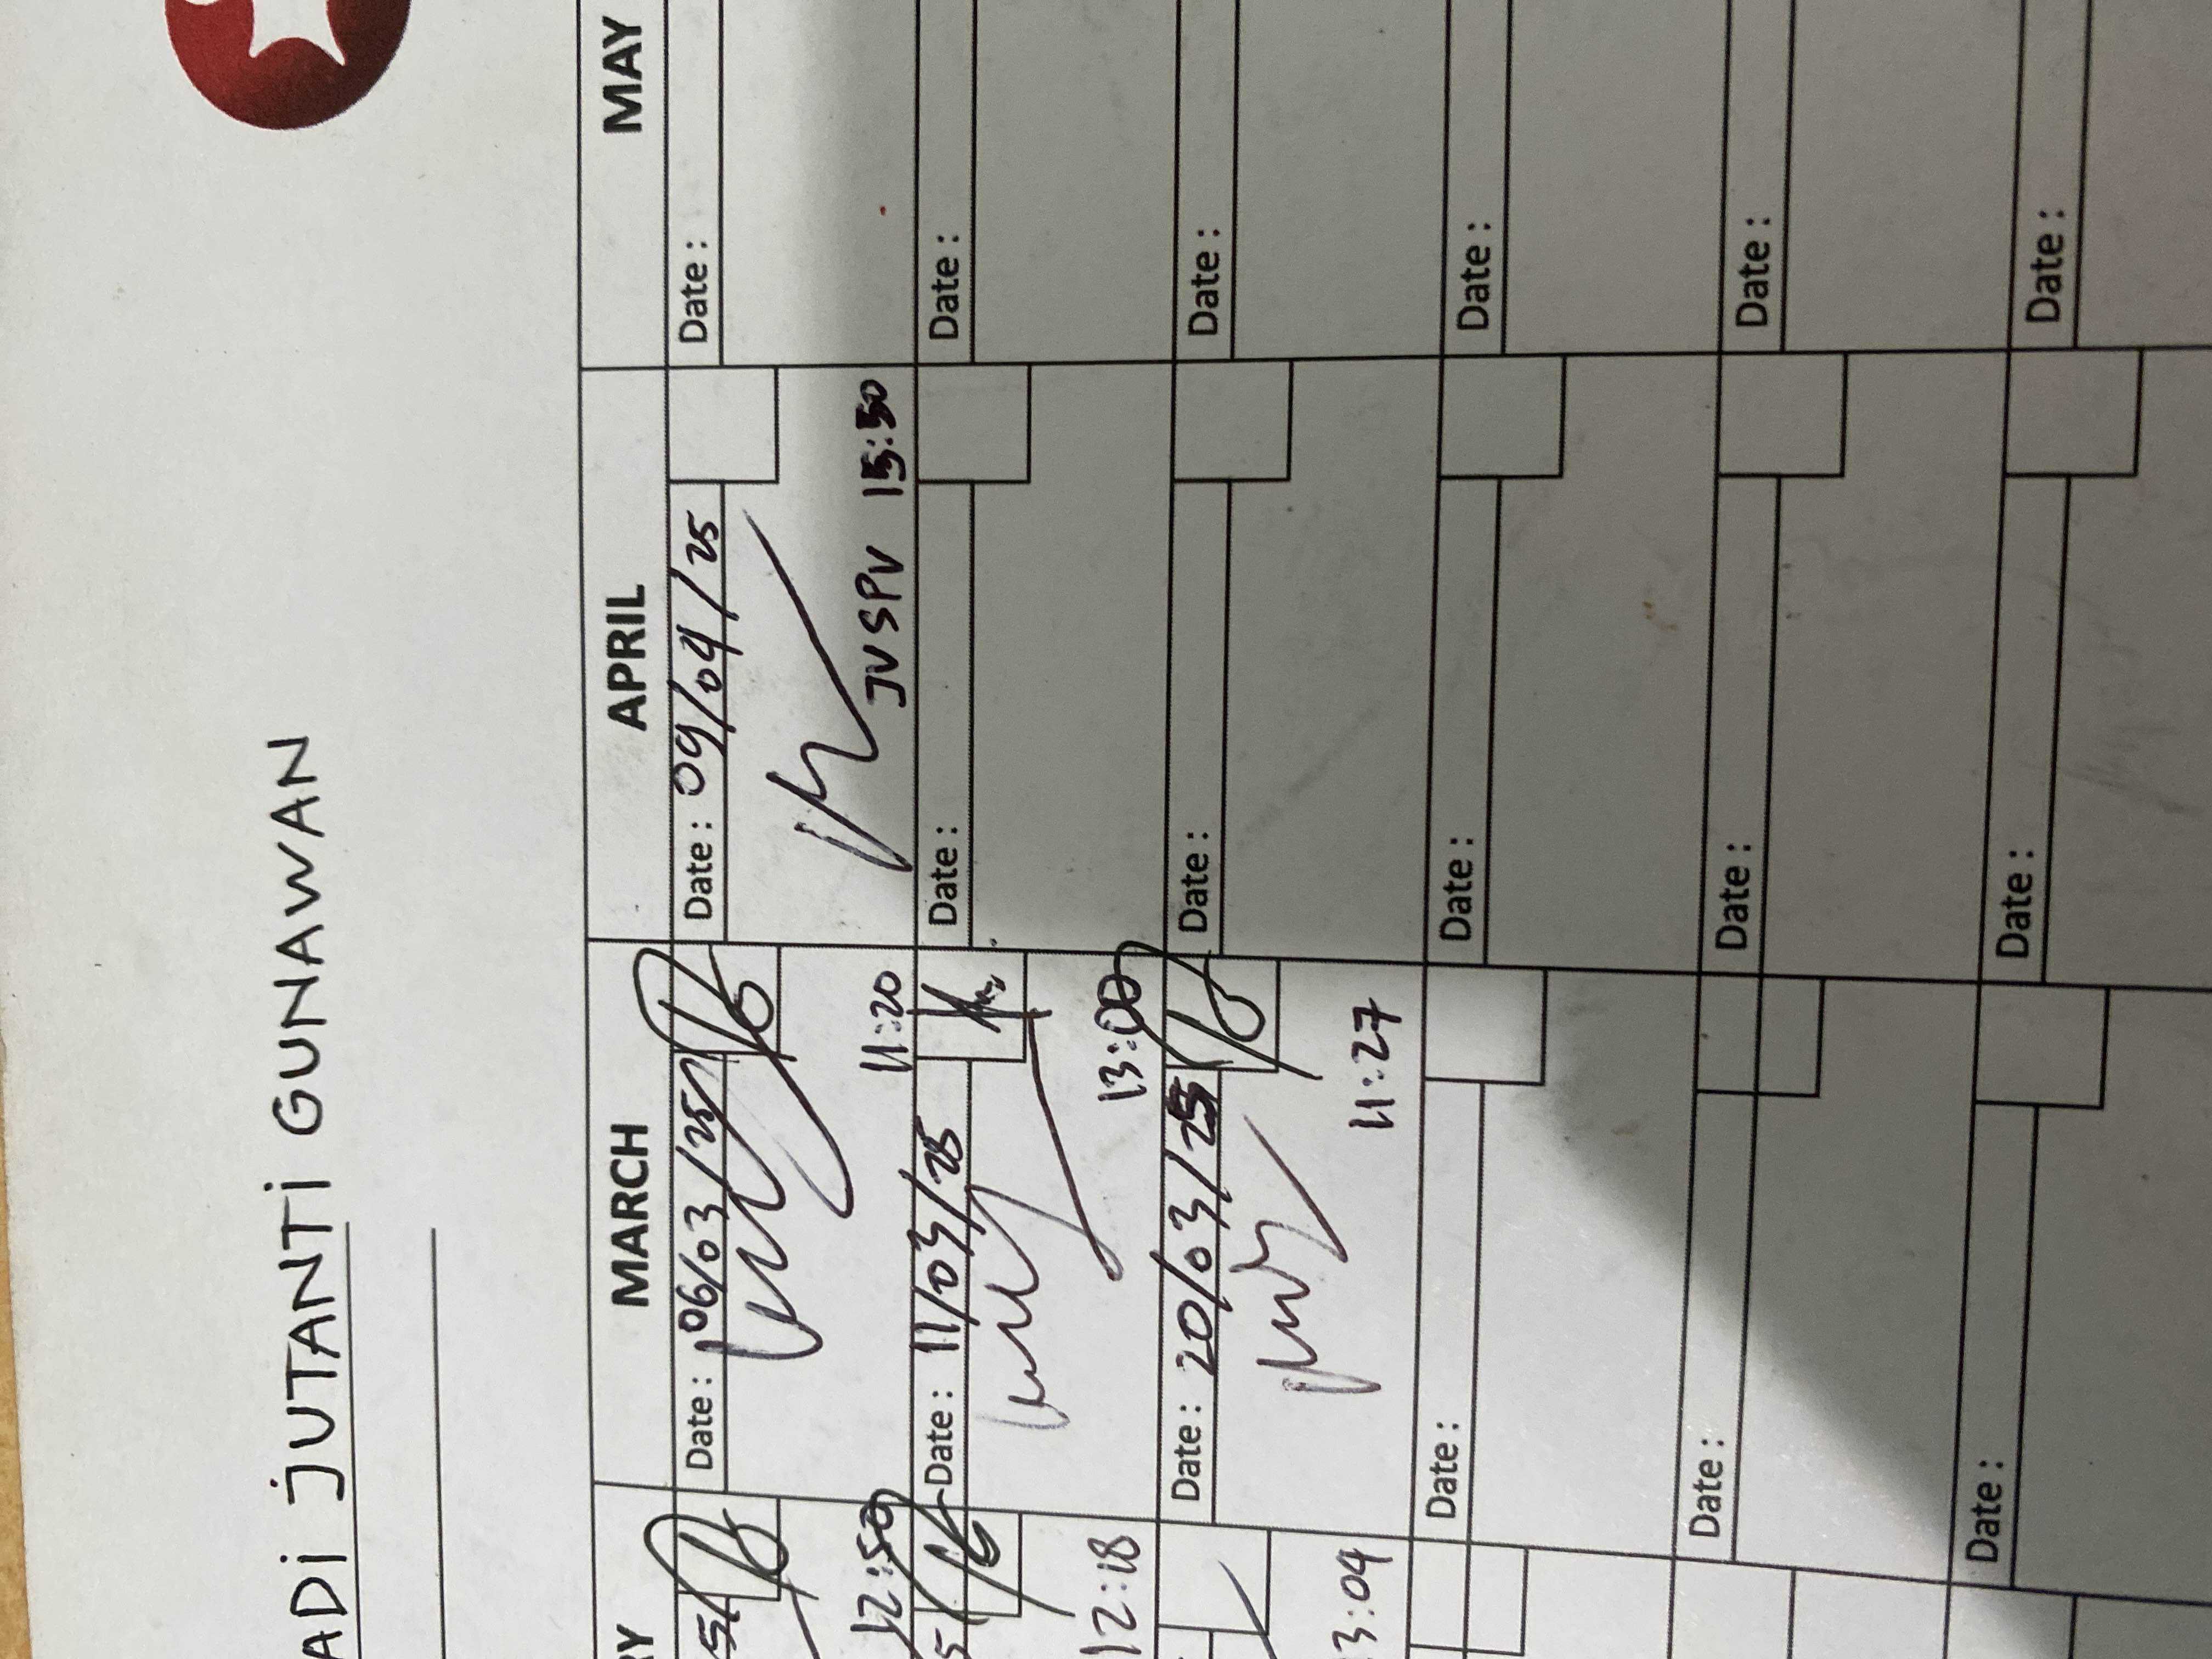 ADI JUTANTI GUNAWAN
RY MARCH APRIL MAY
Date : 06/03/25 Date : 09/04/25 Date :
12:50 11:20 JV SPV 15:50
Date : 11/03/25 Date : Date :
12:18 13:00
Date : 20/03/25 Date : Date :
3:04 11:27
Date : Date : Date :
Date : Date : Date :
Date : Date : Date :